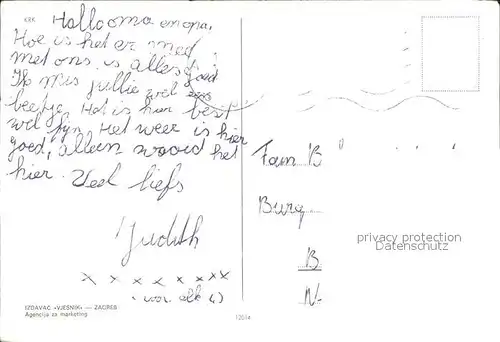 KRK
Hallo oma en opa,
Hoe is het er mee
met ons is alles goed!
Ik mis jullie wel een
beetje. Het is hier best
wel fijn. Het weer is hier
goed, alleen waaid het
hier. Veel liefs
Judith
x x x x x x x x x
voor elk
Fam B
Burg
B
N
privacy protection
Datenschutz
IZDAVAČ »VJESNIK« — ZAGREB
Agencija za marketing
12014